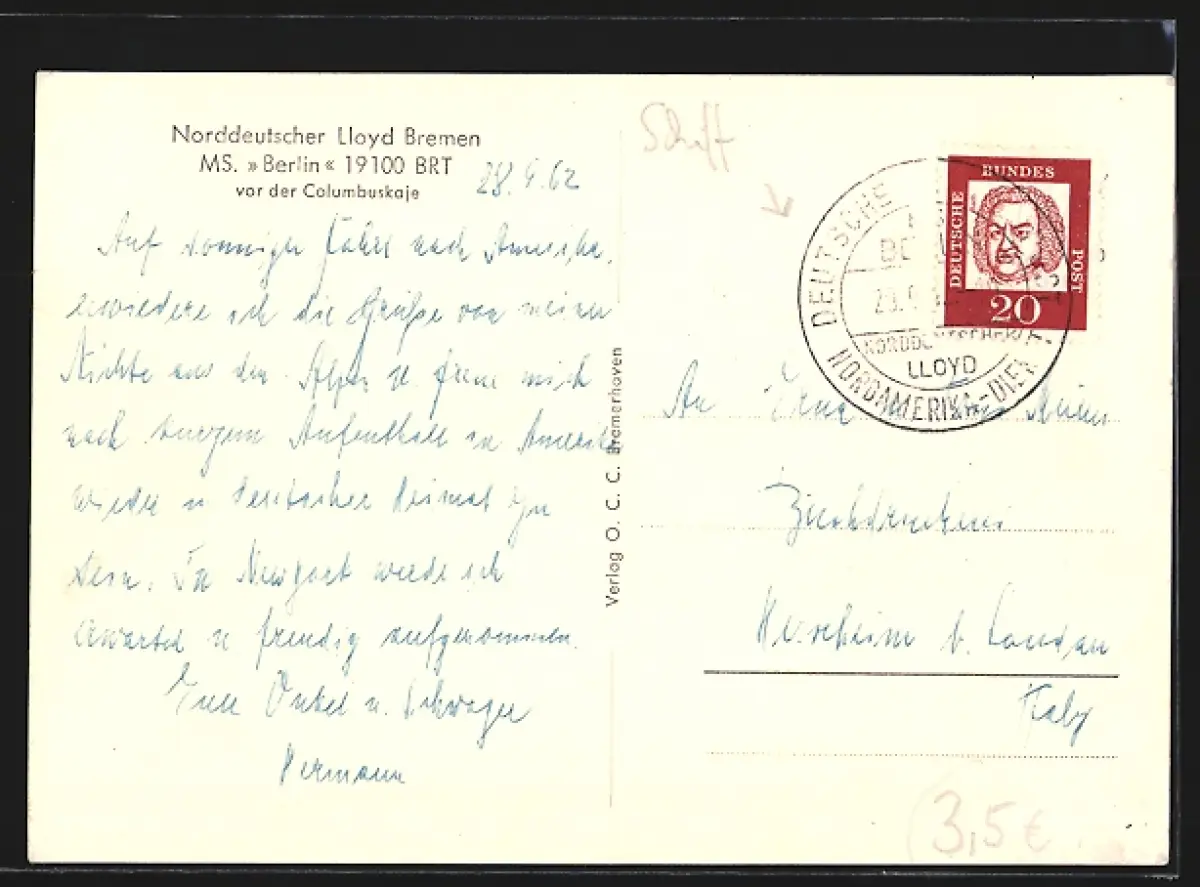 Norddeutscher Lloyd Bremen
MS. »Berlin« 19100 BRT
vor der Columbuskaje
28. 9. 62
Auf sonniger Fahrt nach Amerika,
ich die Grüße von meiner
Nichte aus den Alpen u. freue mich
nach Aufenthalt in Amerika
wieder in deutscher Heimat zu
sein. In Newyork werde ich
erwartet u freudig aufgenommen.
Euer Onkel u. Schwager
Hermann
Verlag O. C. C. Bremerhaven
Schiff
DEUTSCHE
NORDAMERIKA-DIE
LLOYD
DEUTSCHE
BUNDES
POST
20
An Erna
Herxheim b. Landau
Pfalz
3,5 €